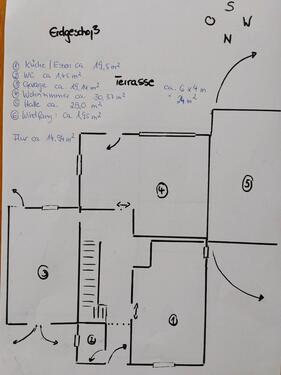 Erdgeschoß
S
O W
N
① Küche / Essen ca 19,5 m²
② WC ca. 1,45 m²
③ Garage ca. 19,14 m²
④ Wohnzimmer ca. 30,57 m²
⑤ Halle ca. 29,0 m²
⑥ Windfang: ca. 1,95 m²
Flur ca 14,94 m²
Terrasse
ca. 6 x 4 m
24 m²
④
⑤
③
①
②